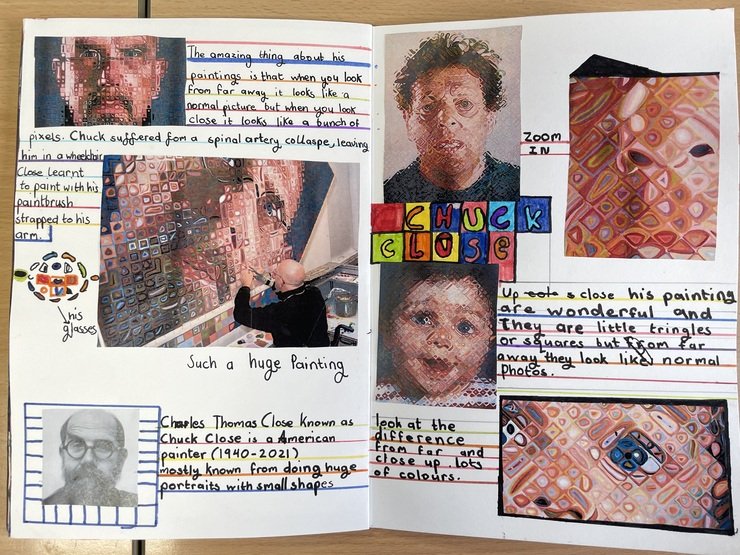 The amazing thing about his
paintings is that when you look
from far away it looks like a
normal picture but when you look
close it looks like a bunch of
pixels. Chuck suffered fom a spinal artery collaspe, leaving
him in a wheelchair
Close learnt
to paint with his
paintbrush
strapped to his
arm.
his
glasses
Such a huge Painting
Charles Thomas Close known as
Chuck Close is a American
painter (1940-2021)
mostly known from doing huge
portraits with small shapes
ZOOM
IN
CHUCK
CLOSE
Up close his painting
are wonderful and
They are little tringles
or squares but From far
away they look like normal
Photos.
look at the
difference
from far and
close up. lots
of colours.